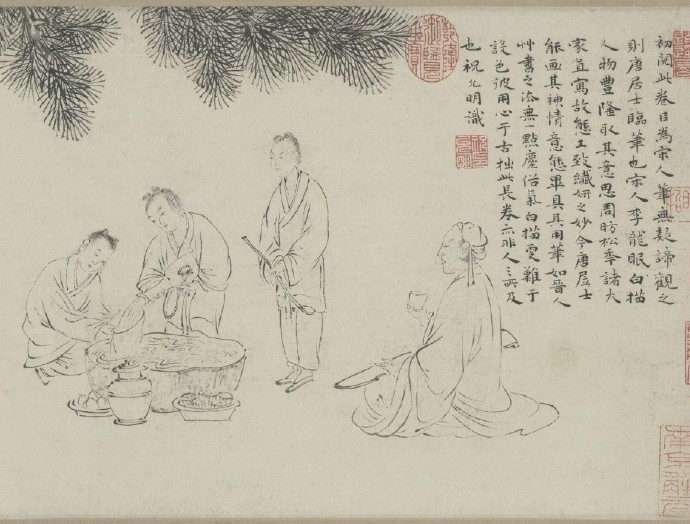 初閱此卷目為宋人筆無疑諦觀之
則唐居士臨筆也宋人李龍眠白描
人物豐隆取其意思周昉松秊諸大
家直寫故態工致纖妍之妙今唐居士
能画其神情意態畢具其用筆如晉人
艸書之法無一點塵俗氣白描更難于
設色彼用心于古拙此長卷亦非人之所及
也祝允明識
乾隆御覽之寶
南京解元